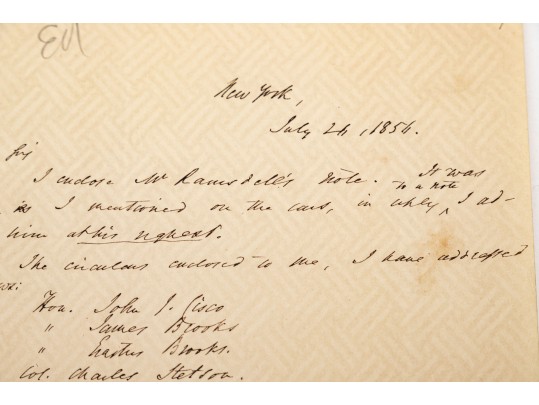 EM
New York,
July 24, 1856.
Sir
I enclose Mr Ramsdell's note. It was
to a note
as I mentioned on the cars, in reply ^ I ad-
him at his request.
The circulars enclosed to me, I have addressed
Hon. John J. Cisco
" James Brooks
" Erastus Brooks.
Col. Charles Stetson.